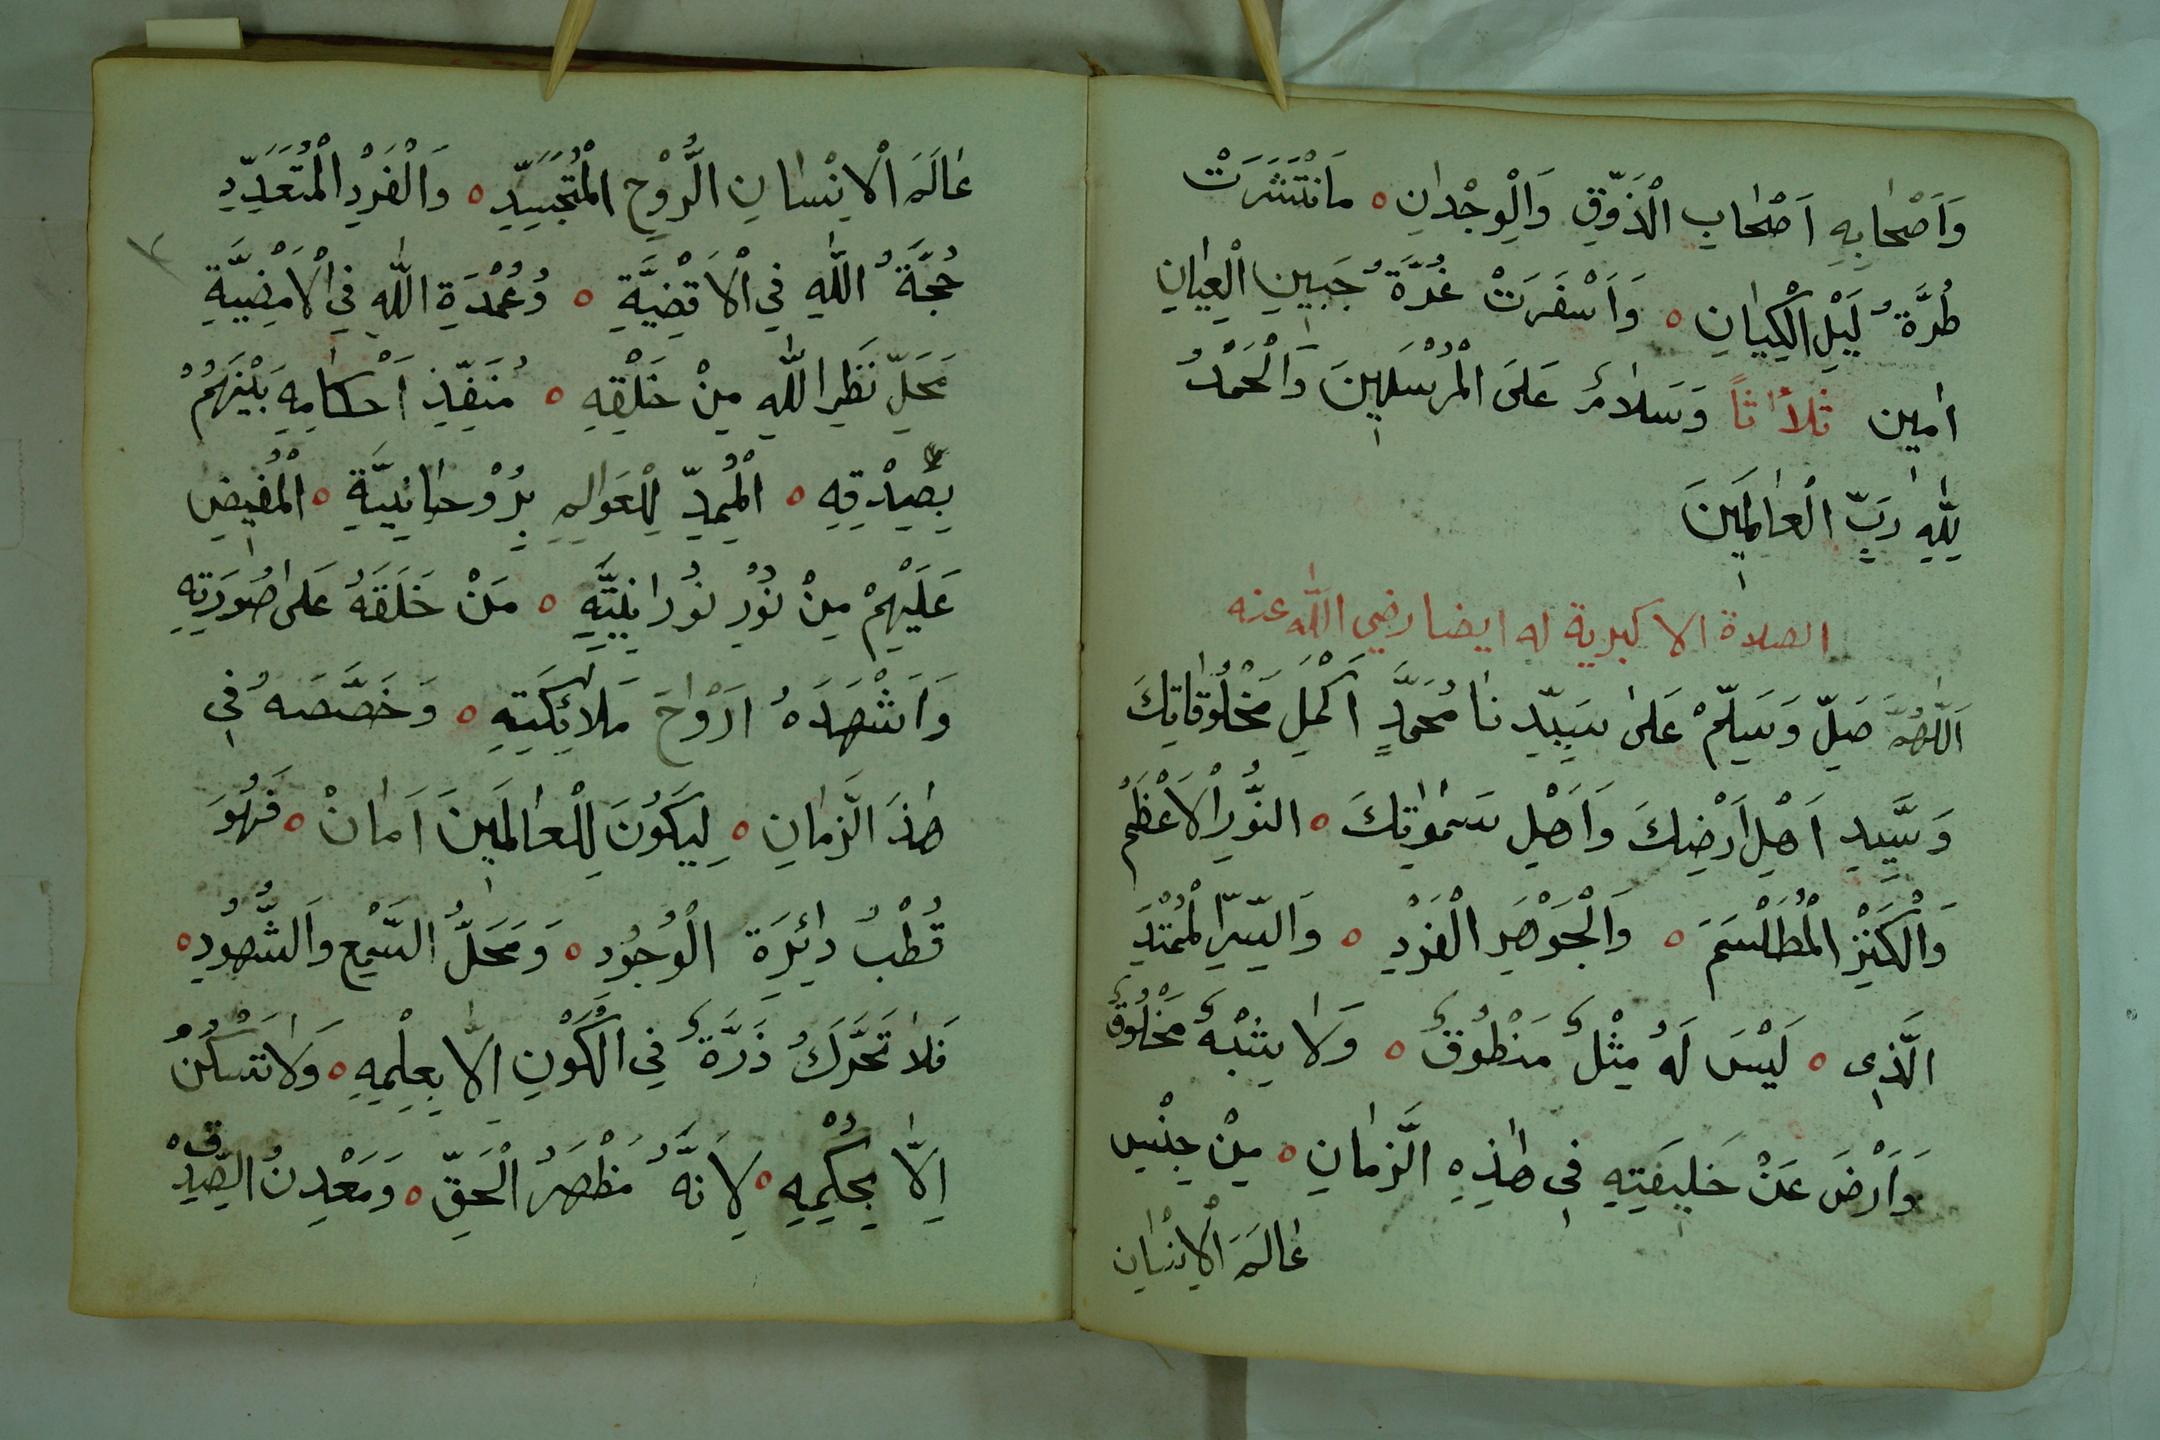 وَاَصْحَابِهِ اَصْحَابِ الْذَّوْقِ وَالْوِجْدَانِ ە مَانْتَشَرَتْ
طُرَّةُ لَيْلِ الْكِيَانِ ە وَاَسْفَرَتْ غُرَّةُ جَبِينِ الْعِيَانِ
اٰمين ثَلَاثًا وَسَلَامٌ عَلَى الْمُرْسَلِينَ وَالْحَمْدُ
لِلّٰهِ رَبِّ الْعَالَمِينَ
الصلاة الاكبرية له ايضا رضي الله عنه
اَللّٰهُمَّ صَلِّ وَسَلِّمْ عَلٰى سَيِّدِنَا مُحَمَّدٍ اَكْمَلِ مَخْلُوقَاتِكَ
وَسَيِّدِ اَهْلِ اَرْضِكَ وَاَهْلِ سَمٰوٰاتِكَ ە النُّورِ الْاَعْظَمْ
وَالْكَنْزِ الْمُطَلْسَمْ ە وَالْجَوْهَرِ الْفَرْدِ ە وَالسِّرِّ الْمُمْتَدِّ
الَّذِى ە لَيْسَ لَهُ مِثْلٌ مَنْطُوقٌ ە وَلَا يشْبْهُ مَخْلُوقٌ
وَاَرْضَ عَنْ خَلِيفَتِهِ فِى هٰذِهِ الزَّمَانِ ە مِنْ جِنْسِ
عَالَمَ الْاِنْسَانِ
عَالَمَ الْاِنْسَانِ الرُّوْحِ الْمُتَجَسِّدِ ە وَالْفَرْدِ الْمُتَعَدِّدِ
حُجَّةُ اللّٰهِ فِي الْاَقْضِيَّةِ ە وَعُمْدَةِ اللّٰهِ فِي الْاَمْضِيَّةِ
مَحَلِّ نَظَرِ اللّٰهِ مِنْ خَلْقِهِ ە مُنَفِّذِ اَحْكَامِهِ بَيْنَهُمْ
بِصِدْقِهِ ە الْمُمِدِّ لِلْعَوَالِمِ بِرُوْحَانِيَّةِ ە الْمُفِيضِ
عَلَيْهِمْ مِنْ نُوْرِ نُوْرَانِيَّتِهِ ە مَنْ خَلَقَهُ عَلٰى صُورَتِهِ
وَاَشْهَدَهُ اَرْوَاحَ مَلَائِكَتِهِ ە وَخَصَّصَهُ فِي
هٰذَ الزَّمَانِ ە لِيَكُونَ لِلْعَالَمِينَ اَمَانْ ە فَهُوَ
قُطْبُ دَائِرَةِ الْوُجُودِ ە وَمَحَلُّ السَّمْعِ وَالشُّهُودِ ە
فَلَا تَحَرَّكُ ذَرَّةٌ فِي الْكَوْنِ اِلَّا بِعِلْمِهِ ە وَلَا تَسْكُنُ
اِلَّا بِحُكْمِهِ ە لِاَنَّهُ مَظْهَرُ الْحَقِّ ە وَمَعْدِنُ الصِّدْقْ